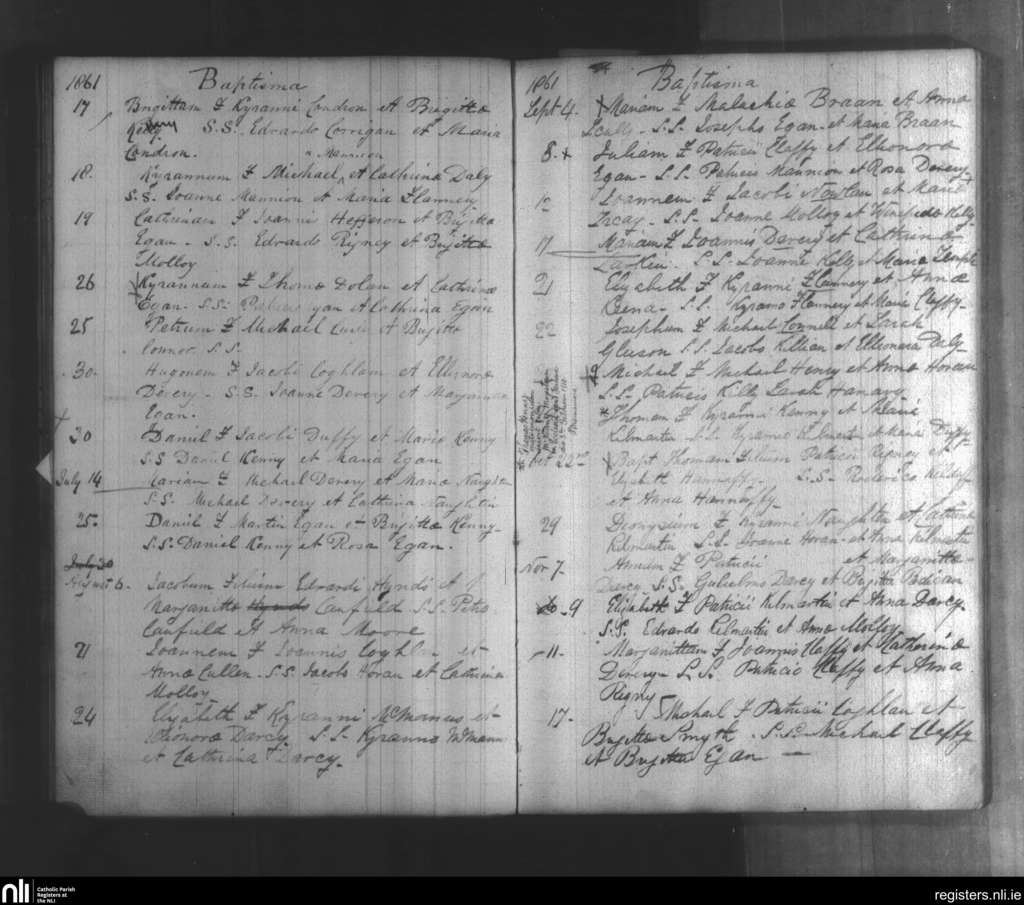 1861 Baptisma
17 Brigittam F Kyranni Condron et Brigittæ
Kelly S.S. Edvardo Corrigan et Maria
Condron.
" Mannion
18. Kyrannum F Michael et Cathrina Daly
S.S. Joanne Mannion et Maria Flannery
19 Cathrinam F Joanni Hefferon et Brigitta
Egan - S.S. Edvardo Rigney et Brigitta
Molloy
26 Kyrannum F Thomæ Dolan et Cathrinæ
Egan - S.S. Patricio Egan et Cathrina Egan
25 Petrum F Michael et Brigitta
Connor S.S.
30 Hugonem F Jacobi Coghlan et Ellenora
Devery - S.S. Joanne Devery et Margaritta
Egan.
30 Daniel F Jacobi Duffy et Maria Kenny
S.S Daniel Kenny et Maria Egan
July 14 Mariam F Michael Devery et Maria Naughton
S.S. Michael Devery et Cathrina Naughton
25. Daniel F Martin Egan et Brigitta Kenny
S.S. Daniel Kenny et Rosa Egan.
July 30
August 6. Jacobum Filium Edvardi Hynds et
Margaritta Hynds Canfield S.S. Petro
Canfield et Anna Moore
21 Joannem F Joannis Coghlan et
Anna Cullen. S.S. Jacobo Horan et Cathrina
Molloy
24 Elizabeth F Kyranni McManus et
Honora Darcy S.S. Kyranno McManus
et Cathrina Darcy.
1861 Baptisma
Sept 4. Mariam F Malachiæ Braan et Anna
Scully - S.S. Josepho Egan et Maria Braan
8. Juliam F Patricii Claffy et Elleonora
Egan - S.S. Patricio Mannion et Rosa Devery
12 Joannem F Jacobi Nowlan et Maria
S.S. Joanne Molloy et Winefrida Kelly
17 Mariam F Joannis Devery et Cathrina
Larkin. S.S. Joanne Kelly et Maria Temple
21 Elizabeth F Kyranni Flannery et Anna
Keena - S.S. Kyrano Flannery et Maria Claffy.
22 Josephum F Michael Connell et Sarah
Gleeson S.S. Jacobo Killian et Ellenora Daly
Michael F Michael Henry et Anna Horan
S.S. Patricio Kelly Sarah
Thomam F Kyranni Kenny et Maria
Kilmartin S.S. Kyrano Kilmartin et Maria Duffy
Oct 22nd Bapt Thomam Filium Patricii Rigney et
Elizabeth Hannaffy. S.S. Roderico
et Anna Hannaffy
29 Dionysium F Kyranni Naughton et Cathrina
Kilmartin S.S. Joanne Horan et Anna Kilmartin
Nov 7. Annam F Patricii et Margaritta
Darcy. S.S. Gulielmo Darcy et Brigitta
9 Elizabeth F Patricii Kilmartin et Anna Darcy.
S.S. Edvardo Kilmartin et Anna Molloy
11. Margarittam F Joannis Claffy et Katherina
Devery S.S. Patricio Claffy et Anna
Rigny
17. Michael F Patricii Coghlan et
Brigitta Smyth. S.S. Michael Claffy
et Brigitta Egan
nli Catholic Parish
Registers at
the NLI
registers.nli.ie